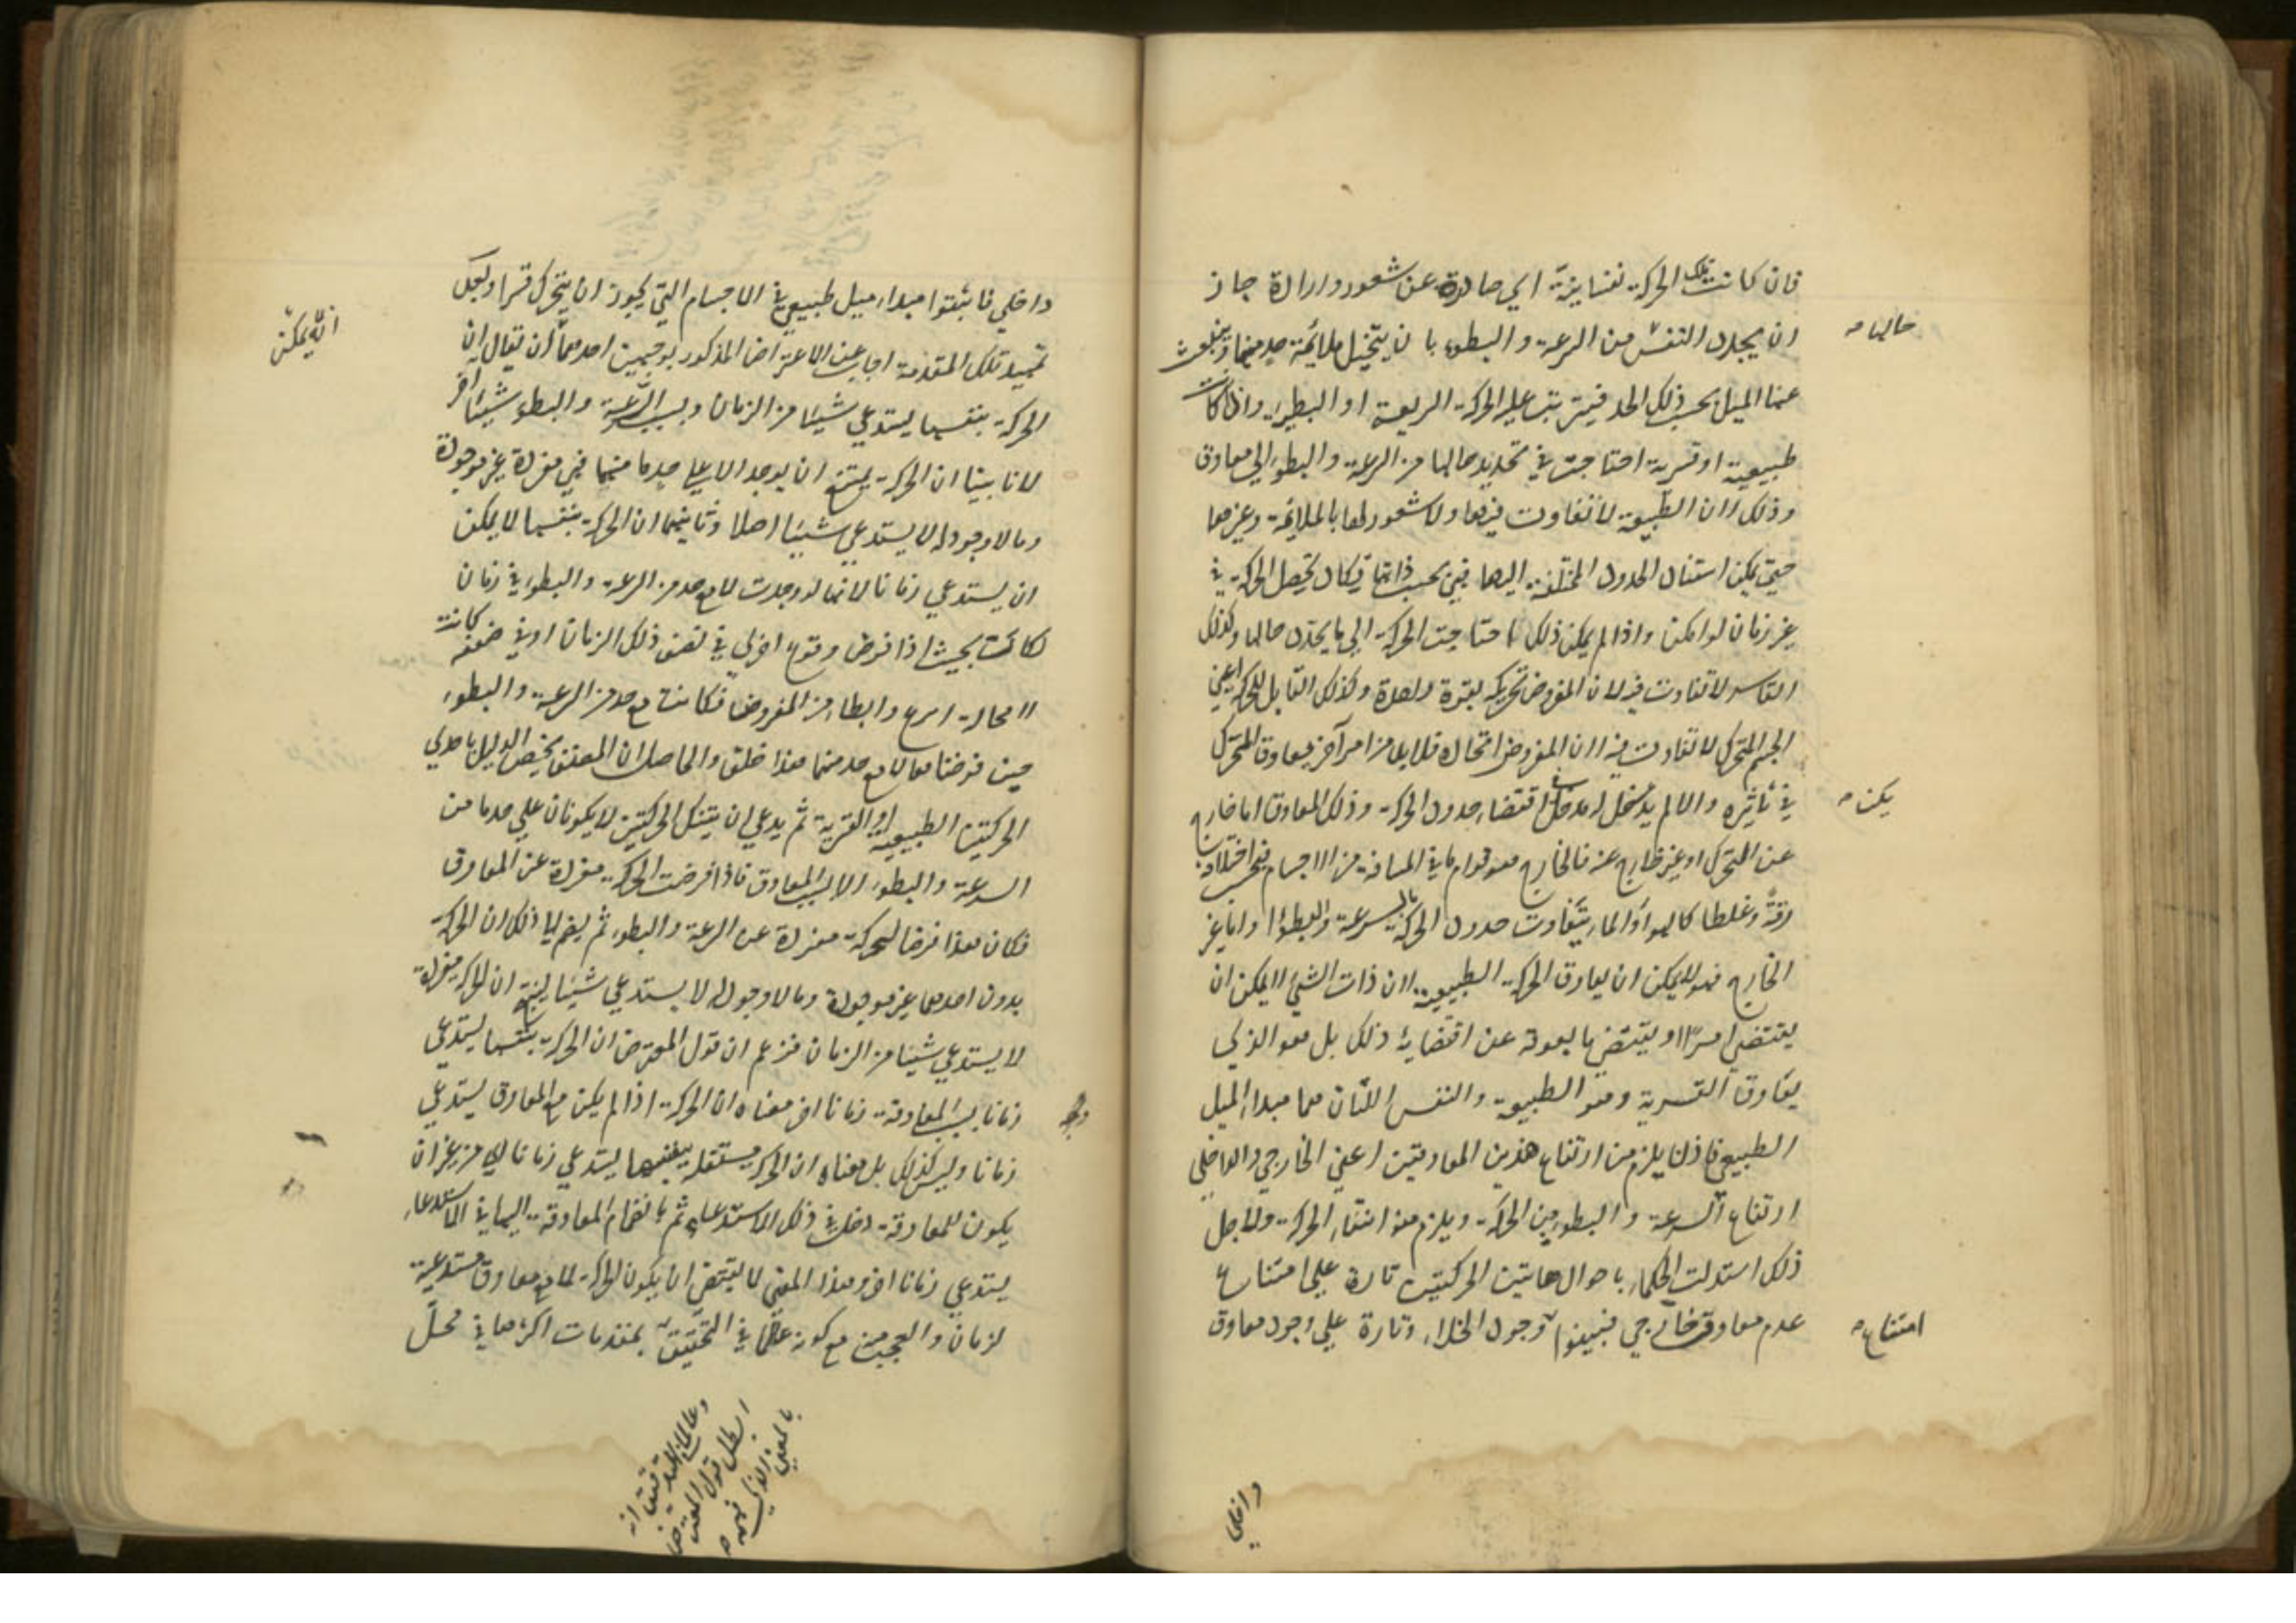 فان كانت تلك الحركة نفسانية اي صادرة عن شعور وارادة جاز
ان يحدد النفس من السرعة والبطوء بان يتخيل ملائمة حد منهما وينبعث
عنها الميل بحسب ذلك الحد فيترتب عليه الحركة السريعة او البطيئة وان كانت
طبيعية او قسرية احتاجت في تحديد حالها من السرعة والبطوء الى معاوق
وذلك لان الطبيعة لا تفاوت فيها ولا شعور لها بالملائمة وغيرها
حتى يمكن استناد الحدود المختلفة اليها فهي بحسب ذاتها تكاد تحصل الحركة في
غير زمان لو امكن واذا لم يمكن ذلك احتاجت الحركة الى ما يحدد حالها وكذلك
القاسر لا تفاوت فيه لان المفروض تحريكه بقوة واحدة وكذلك القابل للحركة اعني
الجسم المتحرك لا تفاوت فيه لان المفروض اتحاده فلا بد من امر آخر يعاوق المحرك
في تأثيره والا لم يدخل له مدخل في اقتضاء حدود الحركة وذلك المعاوق اما خارج
عن المتحرك او غير خارج عنه فالخارج هو قوام ما في المسافة من الاجسام فبحسب اختلافه
رقة وغلظا كالهواء والماء يتفاوت حدود الحركة بالسرعة والبطؤ واما غير
الخارج فهو لا يمكن ان يعاوق الحركة الطبيعية لان ذات الشيء لا يمكن ان
يقتضي امرا ويقتضي ما يعوقه عن اقتضائه ذلك بل هو الذي
يعاوق القسرية وهو الطبيعة والنفس اللتان هما مبداء الميل
الطبيعي فاذن يلزم من ارتفاع هذين المعاوقين اعني الخارجي والداخلي
ارتفاع السرعة والبطوء من الحركة ويلزم منه انتفاء الحركة ولاجل
ذلك استدلت الحكماء باحوال هاتين الحركتين تارة على امتناع
عدم معاوق خارجي فبينوا وجود الخلاء وتارة على وجود معاوق
حالها
يكن
امتناع
داخلي
داخلي فاثبتوا مبداء ميل طبيعي في الاجسام التي يجوز ان يتحرك قسرا ولعل
تمهيد تلك المقدمة اجاب عن الاعتراض المذكور بوجهين احدهما ان يقال ان
الحركة بنفسها يستدعي شيئا من الزمان وبسبب السرعة والبطوء شيئا آخر
لانا بينا ان الحركة يمتنع ان يوجد الا على حد ما منهما فهي مفردة غير موجودة
وما لا وجود له لا يستدعي شيئا اصلا وثانيهما ان الحركة بنفسها لا يمكن
ان يستدعي زمانا لانها لو وجدت لا مع حد من السرعة والبطوء في زمان
لكانت بحيث اذا فرض وقوع اخرى في نصف ذلك الزمان او في ضعفه كانت
لا محالة اسرع وابطا من المفروضة فكانت مع حد من السرعة والبطوء
حين فرضناها لا مع حد منهما هذا خلف والحاصل ان المصنف يخص الدليل باحدى
الحركتين الطبيعية او القسرية ثم يدعي ان تينك الحركتين لا يكونان على حد ما من
السرعة والبطوء الا بسبب المعاوق فاذا فرضت الحركة مفردة عن المعاوق
فكان هذا فرضا لحركة مفردة عن السرعة والبطوء ثم يضم الى ذلك ان الحركة
بدون احدهما غير موجودة وما لا وجود له لا يستدعي شيئا لينتج ان الحركة مفردة
لا يستدعي شيئا من الزمان فزعم ان قول المعترض ان الحركة بنفسها يستدعي
زمانا بسبب المعاوقة زمانا اخر معناه ان الحركة اذا لم يكن مع المعاوق يستدعي
زمانا وليس كذلك بل معناه ان الحركة مستقلة بنفسها يستدعي زمانا لها من غير ان
يكون للمعاوقة دخل في ذلك الاستدعاء ثم بانضمام المعاوقة اليها في الاستدعاء
يستدعي زمانا اخر وهذا المعنى لا يقتضي ان يكون الحركة لا مع معاوق مستدعية
لزمان والعجب من مع كونه علما في التحقيق بمقدمات اكثرها في محل
و
ابطل قول المعترض
بالمعنى الذي فهمه